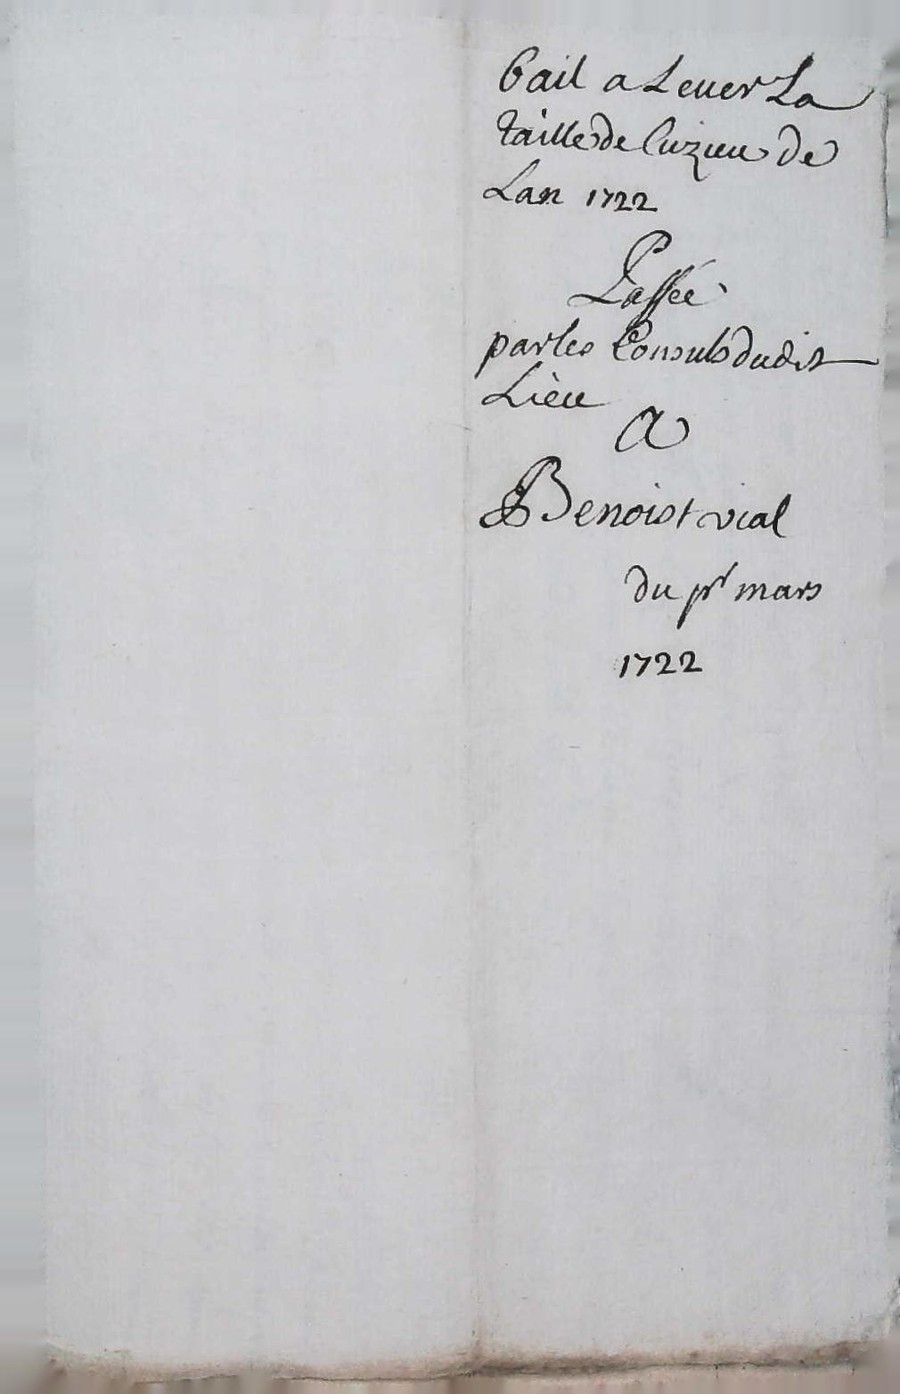 bail a Lever La
taille de Cuzieu de
Lan 1722
Passée
par les Consuls dudit
Lieu
A
Benoist vial
du pr mars
1722